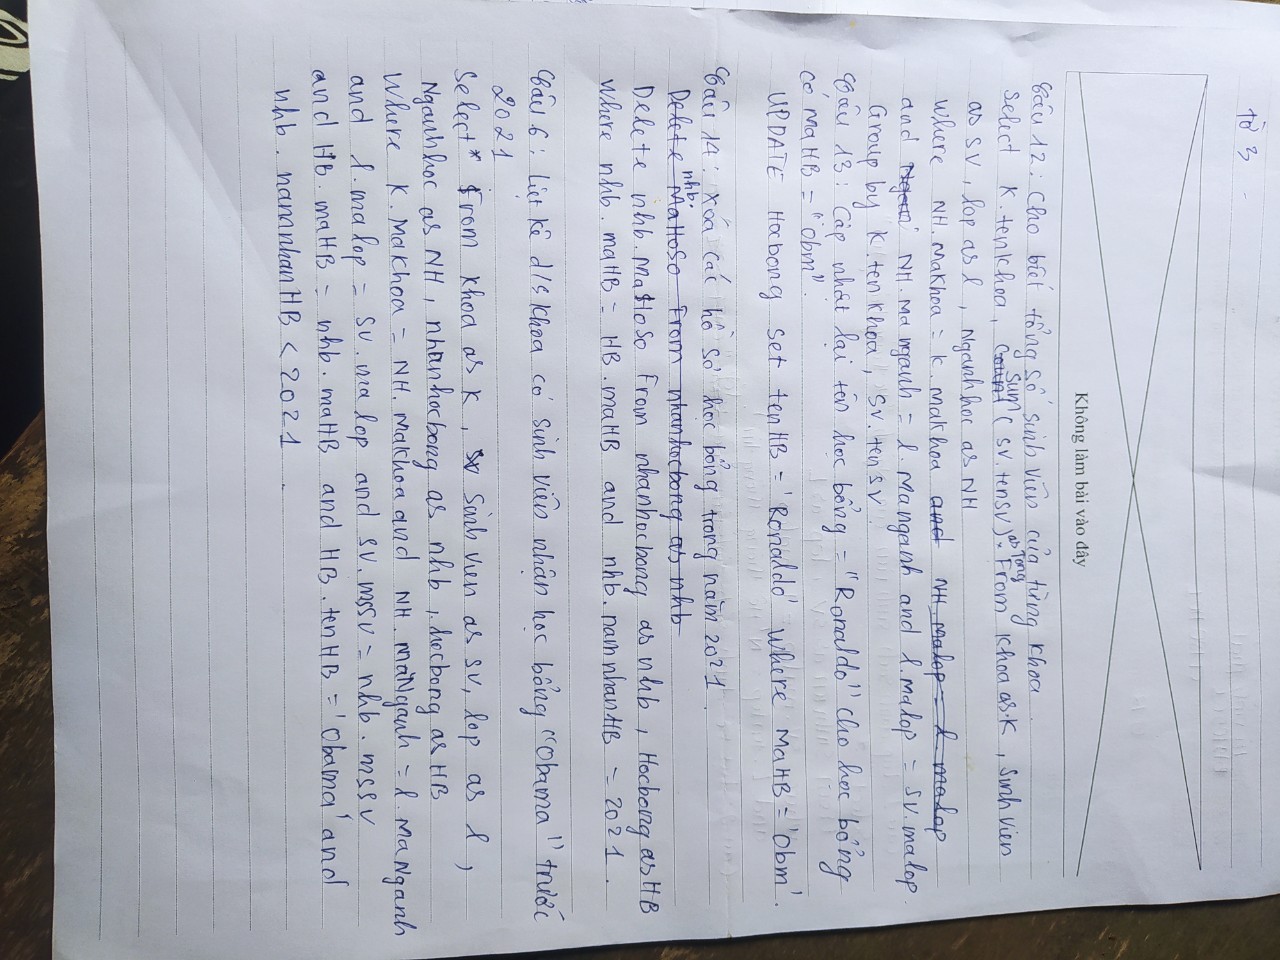 tờ 3
Không làm bài vào đây
Câu 12: Cho biết tổng số sinh viên của từng khoa.
select K.tenkhoa, Sum(sv.tensv) as Tong From khoa as K, sinhvien
as SV, lop as l, Nganhhoc as NH
where NH.Makhoa = K.makhoa and NH.malop = l.malop
and NH.Manganh = l.Manganh and l.malop = sv.malop.
Group by K.tenkhoa, sv.tensv
Câu 13: Cập nhật lại tên học bổng = "Ronaldo" cho học bổng
có MaHB = "Obm".
UPDATE Hocbong set tenHB = 'Ronaldo' where MaHB = 'Obm'.
Câu 14: Xóa các hồ sơ học bổng trong năm 2021.
Delete nhb.MaHoSo From nhanhocbong as nhb
Delete nhb.MaHoSo From nhanhocbong as nhb, Hocbong as HB
where nhb.maHB = HB.maHB and nhb.namnhanHB = 2021.
Câu 6: Liệt kê d/s khoa có sinh viên nhận học bổng "Obama" trước
2021
Select * From khoa as K, Sinhvien as SV, lop as l,
Nganhhoc as NH, nhanhocbong as nhb, hocbong as HB
Where K.Makhoa = NH.Makhoa and NH.maNganh = l.MaNganh
and l.malop = sv.malop and sv.mssv = nhb.mssv
and HB.maHB = nhb.maHB and HB.tenHB = 'Obama' and
nhb.namnhanHB < 2021.